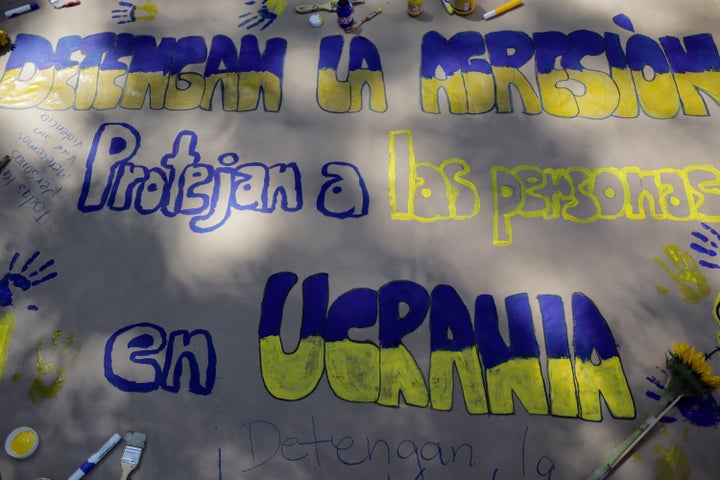 DETENGAN LA AGRESIÒN
Protejan a las personas
en UCRANIA
Todas las
personas
merecemos
vivir sin
violencia
¡Detengan la